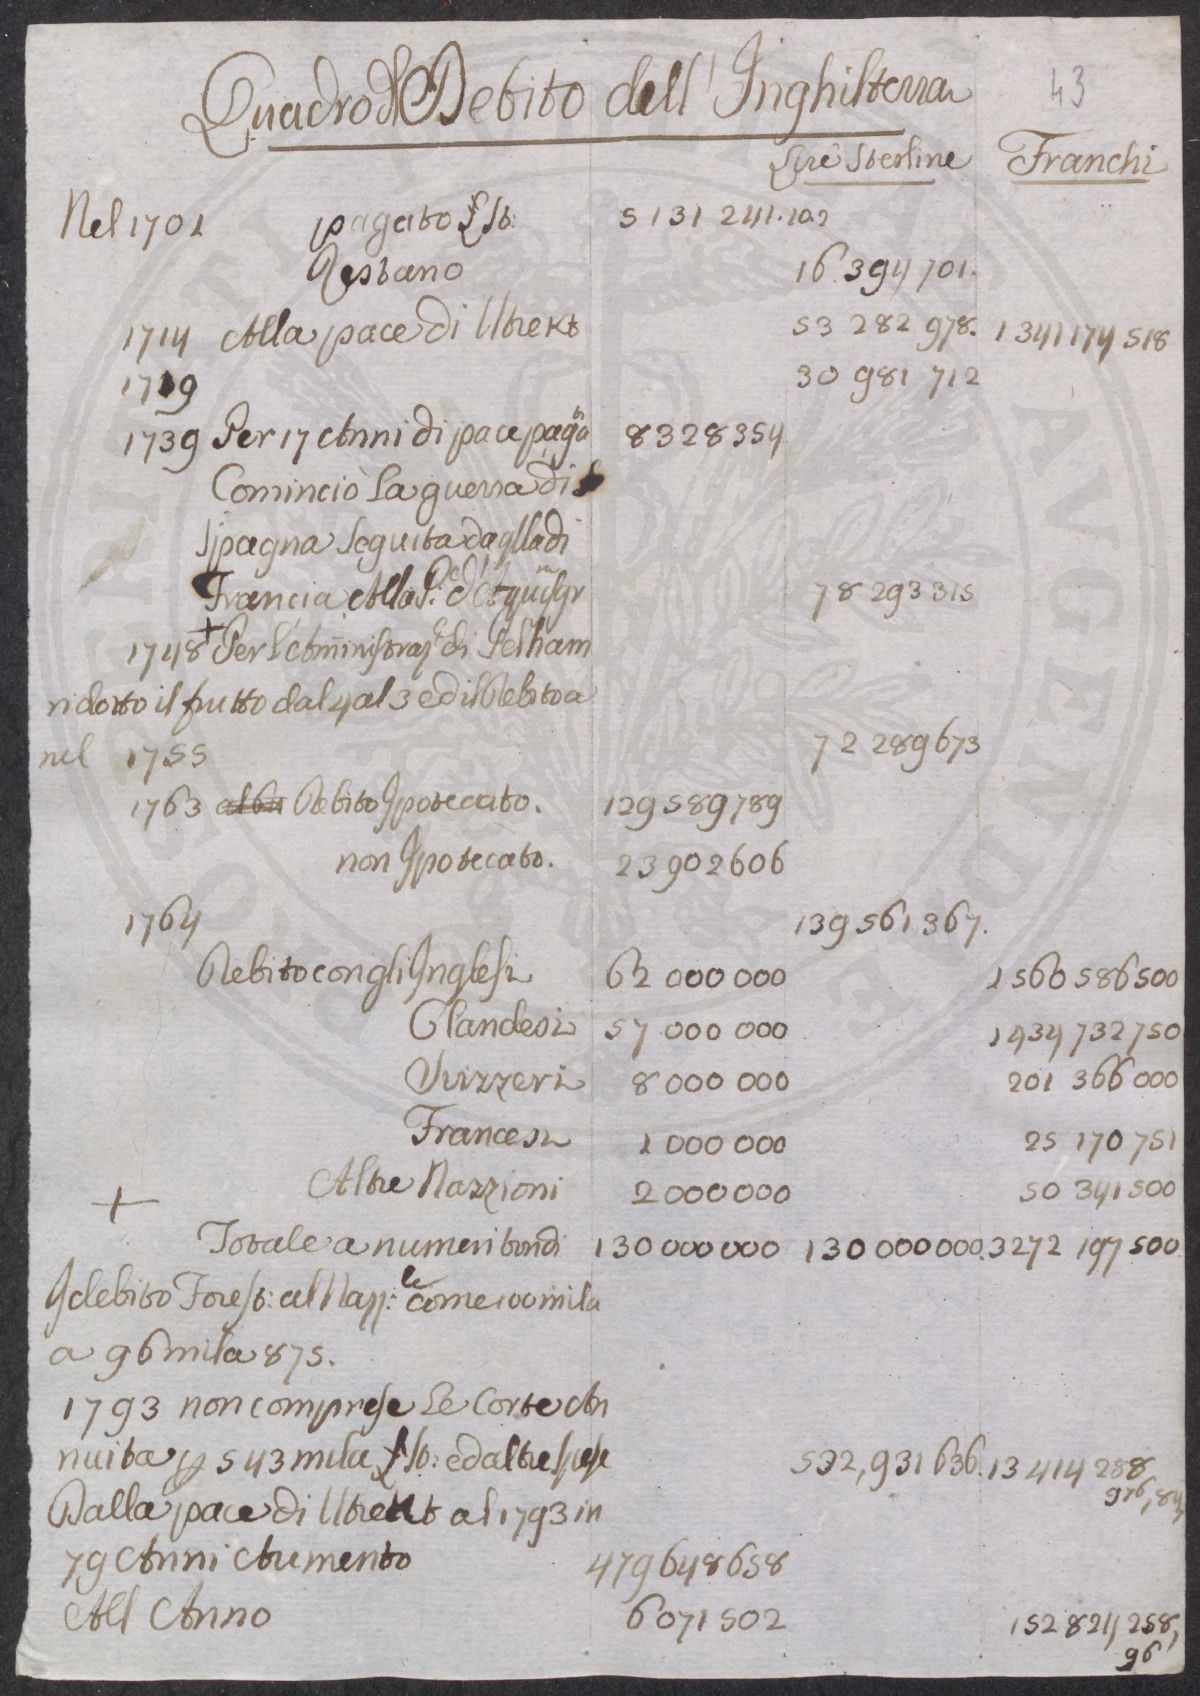 43
Quadro del Debito dell'Inghilterra
Lire Sterline Franchi
Nel 1701 pagato L St: 5 131 241.102
Restano 16 394 701.
1714 Alla pace di Utrekt 53 282 978. 1341174 518
1719 30 981 712
1739 Per 17 Anni di pace pag:to 8328354
Cominciò la guerra di
Spagna seguita da qlla di
Francia Alla P:e d'Aquisgr 78 293 315
1748 + Per l'Amministraz:e di Pelham
ridotto il frutto dal 4 al 3 ed il Debito a
nel 1755 72 289673
1763 Debito Ipotecato. 129589789
non Ipotecato. 23902606
1764 139561367.
Debito con gli Inglesi 62 000 000 1560 586500
Olandesi 57 000 000 1434 732 750
Svizzeri 8 000 000 201 366 000
Francesi 1 000 000 25 170 751
Altre Nazzioni 2000000 50 341 500
+
Totale a numeri tondi 130000000 130 000000. 3272 197 500
Il debito Forest: al Naz:le come 100 mila
a 96 mila 875.
1793 non comprese le Corte An
nuita p 543 mila L St: ed altre spese 532,931636. 13414 288
976,84
Dalla pace di Utrekt al 1793 in
79 Anni Aumento 479648658
All Anno 6071502 152 824 258,
96